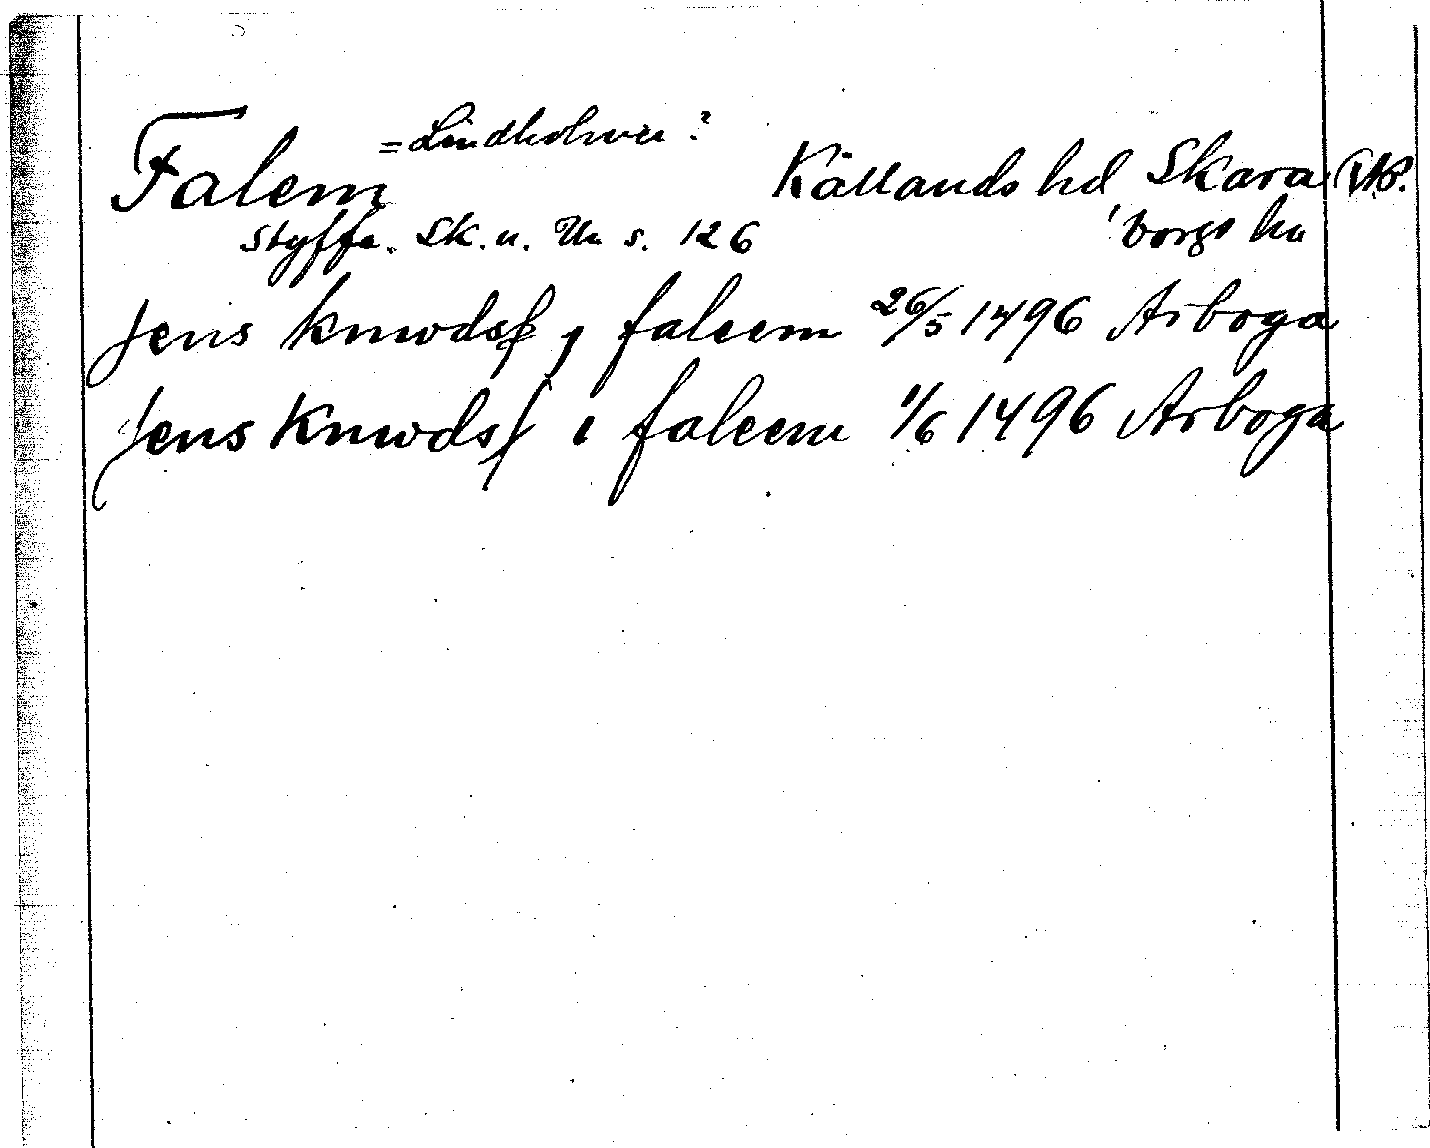 Falem = Lindholmen? Källands hd Skara
Styffe. Sk. u. Un s. 126 borgs län
Jens knwdss j faleem 26/5 1496 Arboga
Jens knwdss i faleem 1/6 1496 Arboga